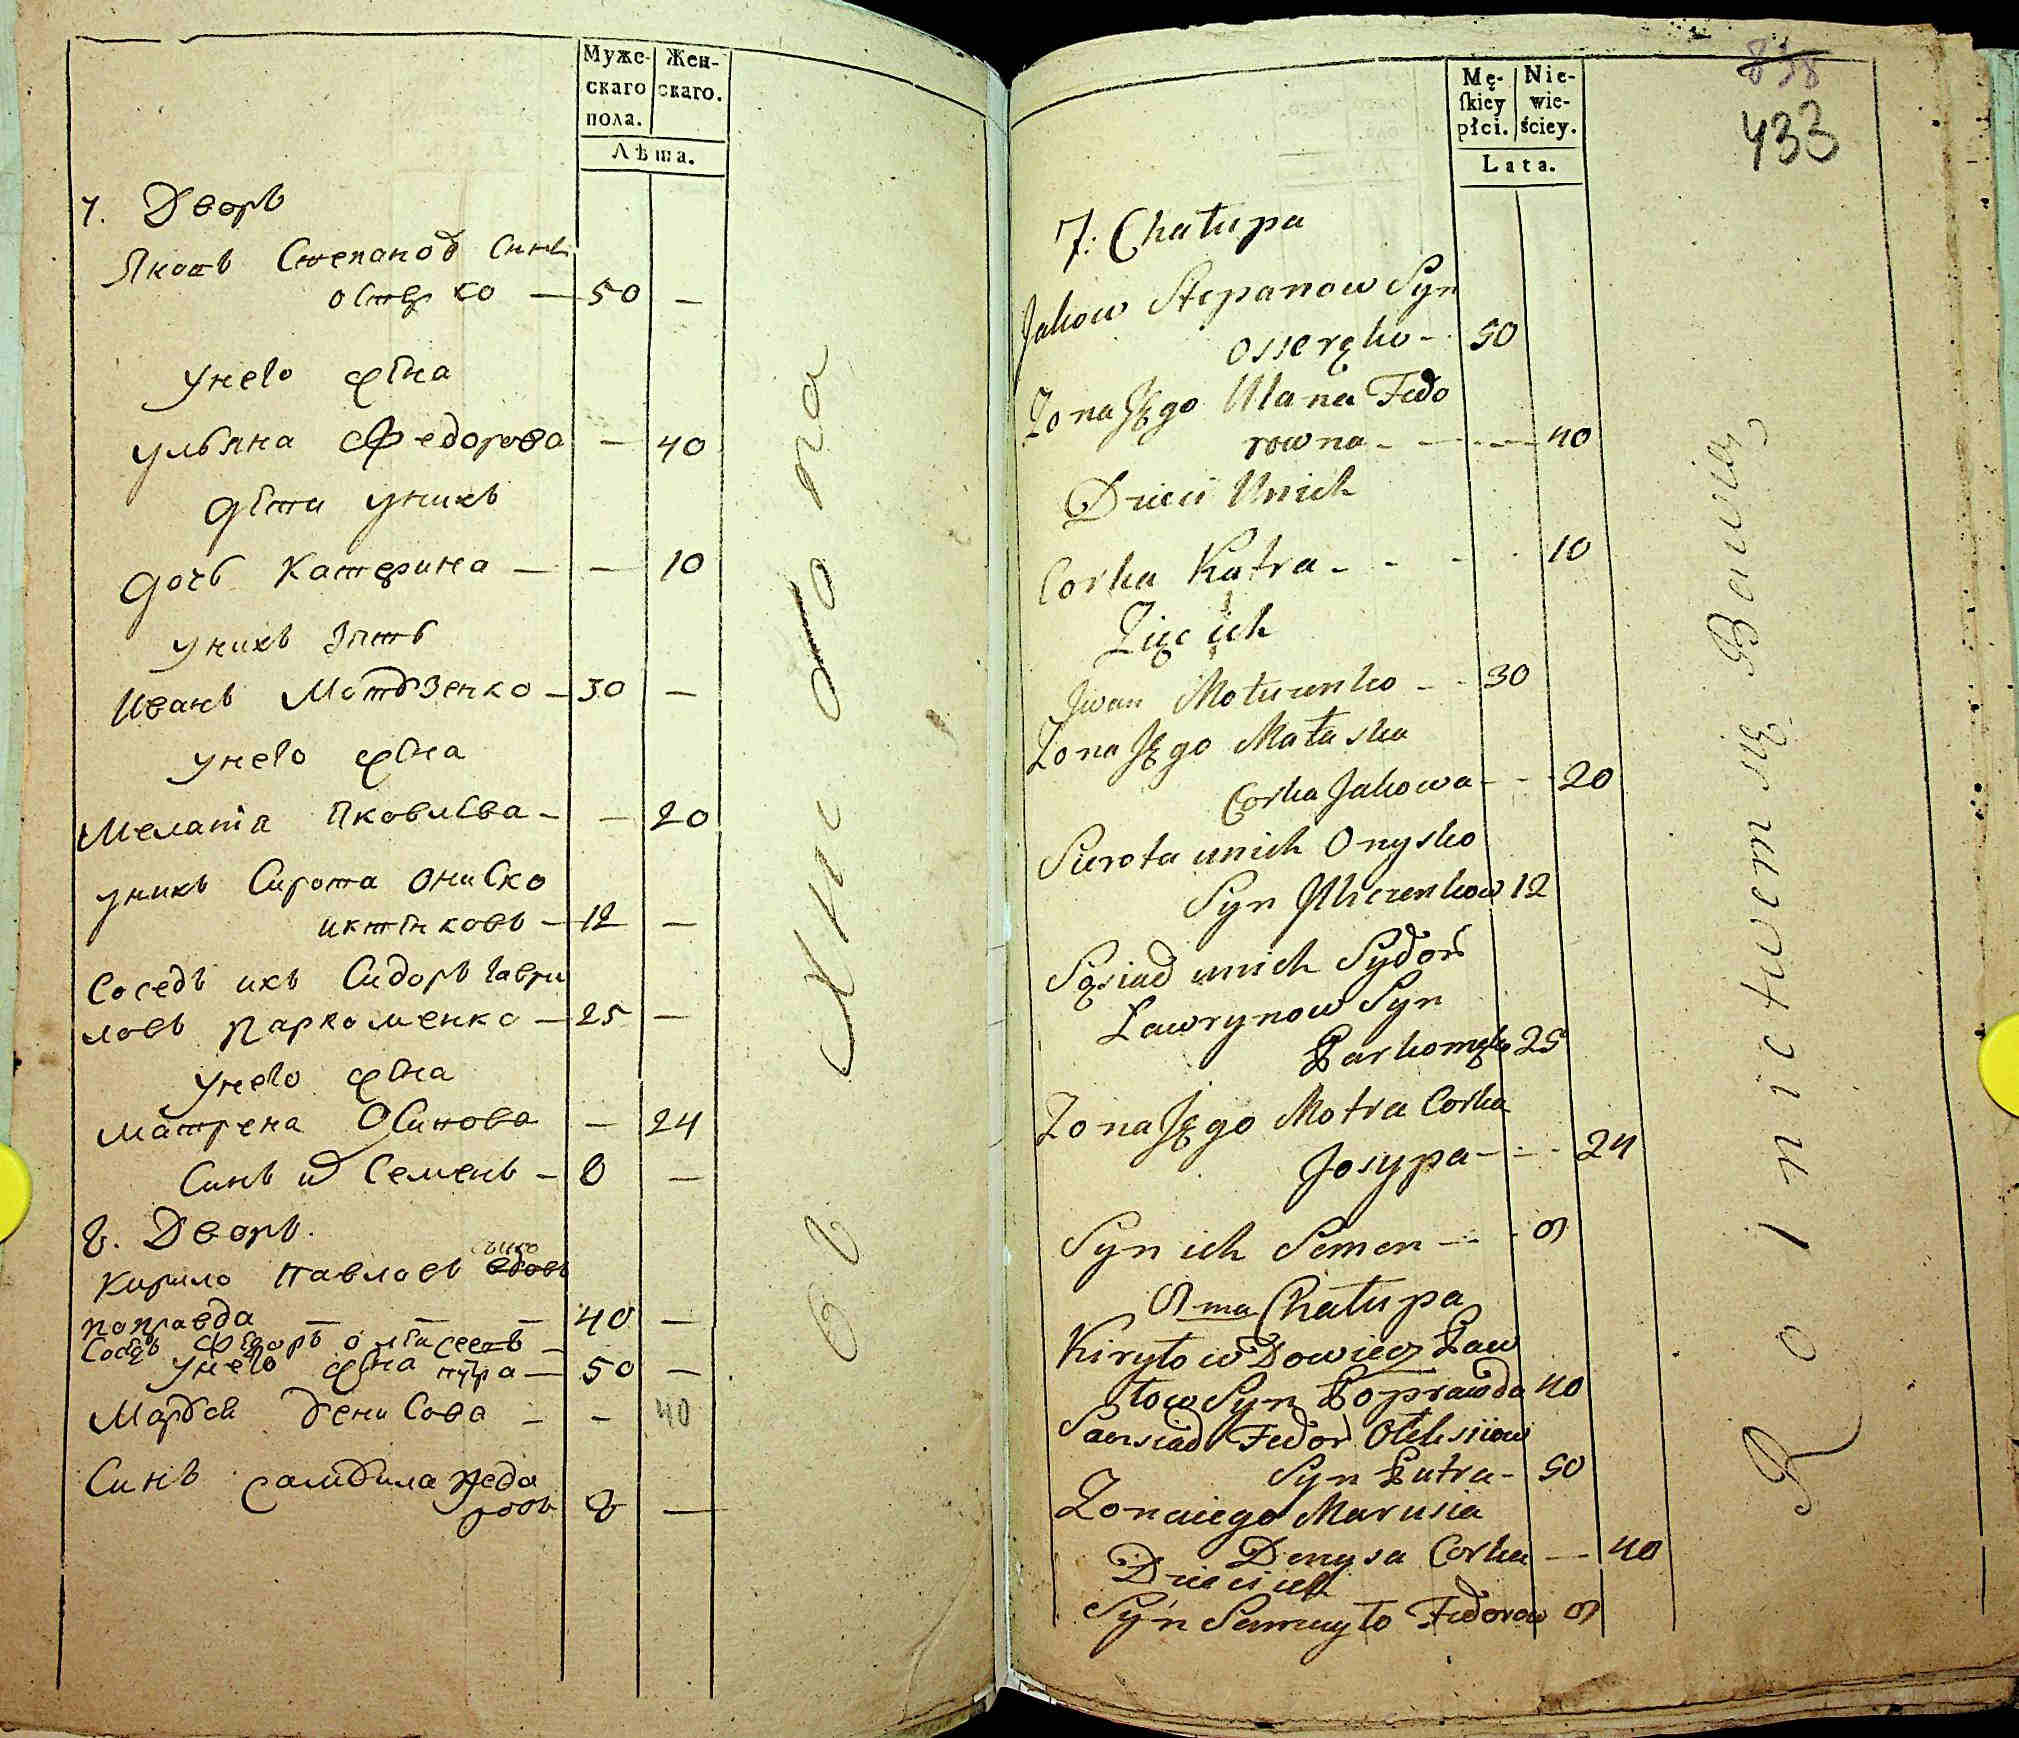 Муже-
скаго
пола.
Жен-
скаго.
Лѣта.
7. Дворъ
Яковъ Степанов Синъ
50 —
Унего жена
Ульяна Федорова — 40
дети Унихъ
дочь Катерина — — 10
Унихъ Зять
Иванъ — 30 —
Унего жена
Мелания Яковлева — — 20
Унихъ Сирота Ониско
— 12 —
Соседъ ихъ Сидоръ Гаври
ловъ Пархоменко — 25 —
Унего жена
Матрена Осипова — 24
Синъ их Семенъ — 8 —
8. Дворъ.
Кирило Павловъ Синъ
Поправда — — — 40 —
Федоръ
Унего жена — 50 —
Денисова — — 40
Синъ Самойла Федо
ровъ 8 —
838
433
Mę-
skiey
płci.
Nie-
wie-
ściey.
Lata.
7: Chałupa
Jakow Stepanow Syn
50
Zona Jego Ulana Fedo
rowna - - - - 40
Dzieci Unich
Corka Katra - - - 10
Zięć ich
Iwan - - 30
Zona Jego Małaska
Corka Jakowa - - 20
Sierota unich Onysko
Syn 12
Sąsiad unich Sydor
Ławrynow Syn
Parkomęko 25
Zona Jego Motra Corka
Josypa - - - 24
Syn ich Semen - - - 8
8ma Chałupa
Kiryło wDowiec Paw
łow Syn Poprawda 40
Sansiad Fedor Ołeksiiow
Syn Putra - 50
Zona iego Marusia
Denysa Corka — 40
Dzieci ich
Syn Samuyło Fedorow 8
Rolnictwem się Bawią